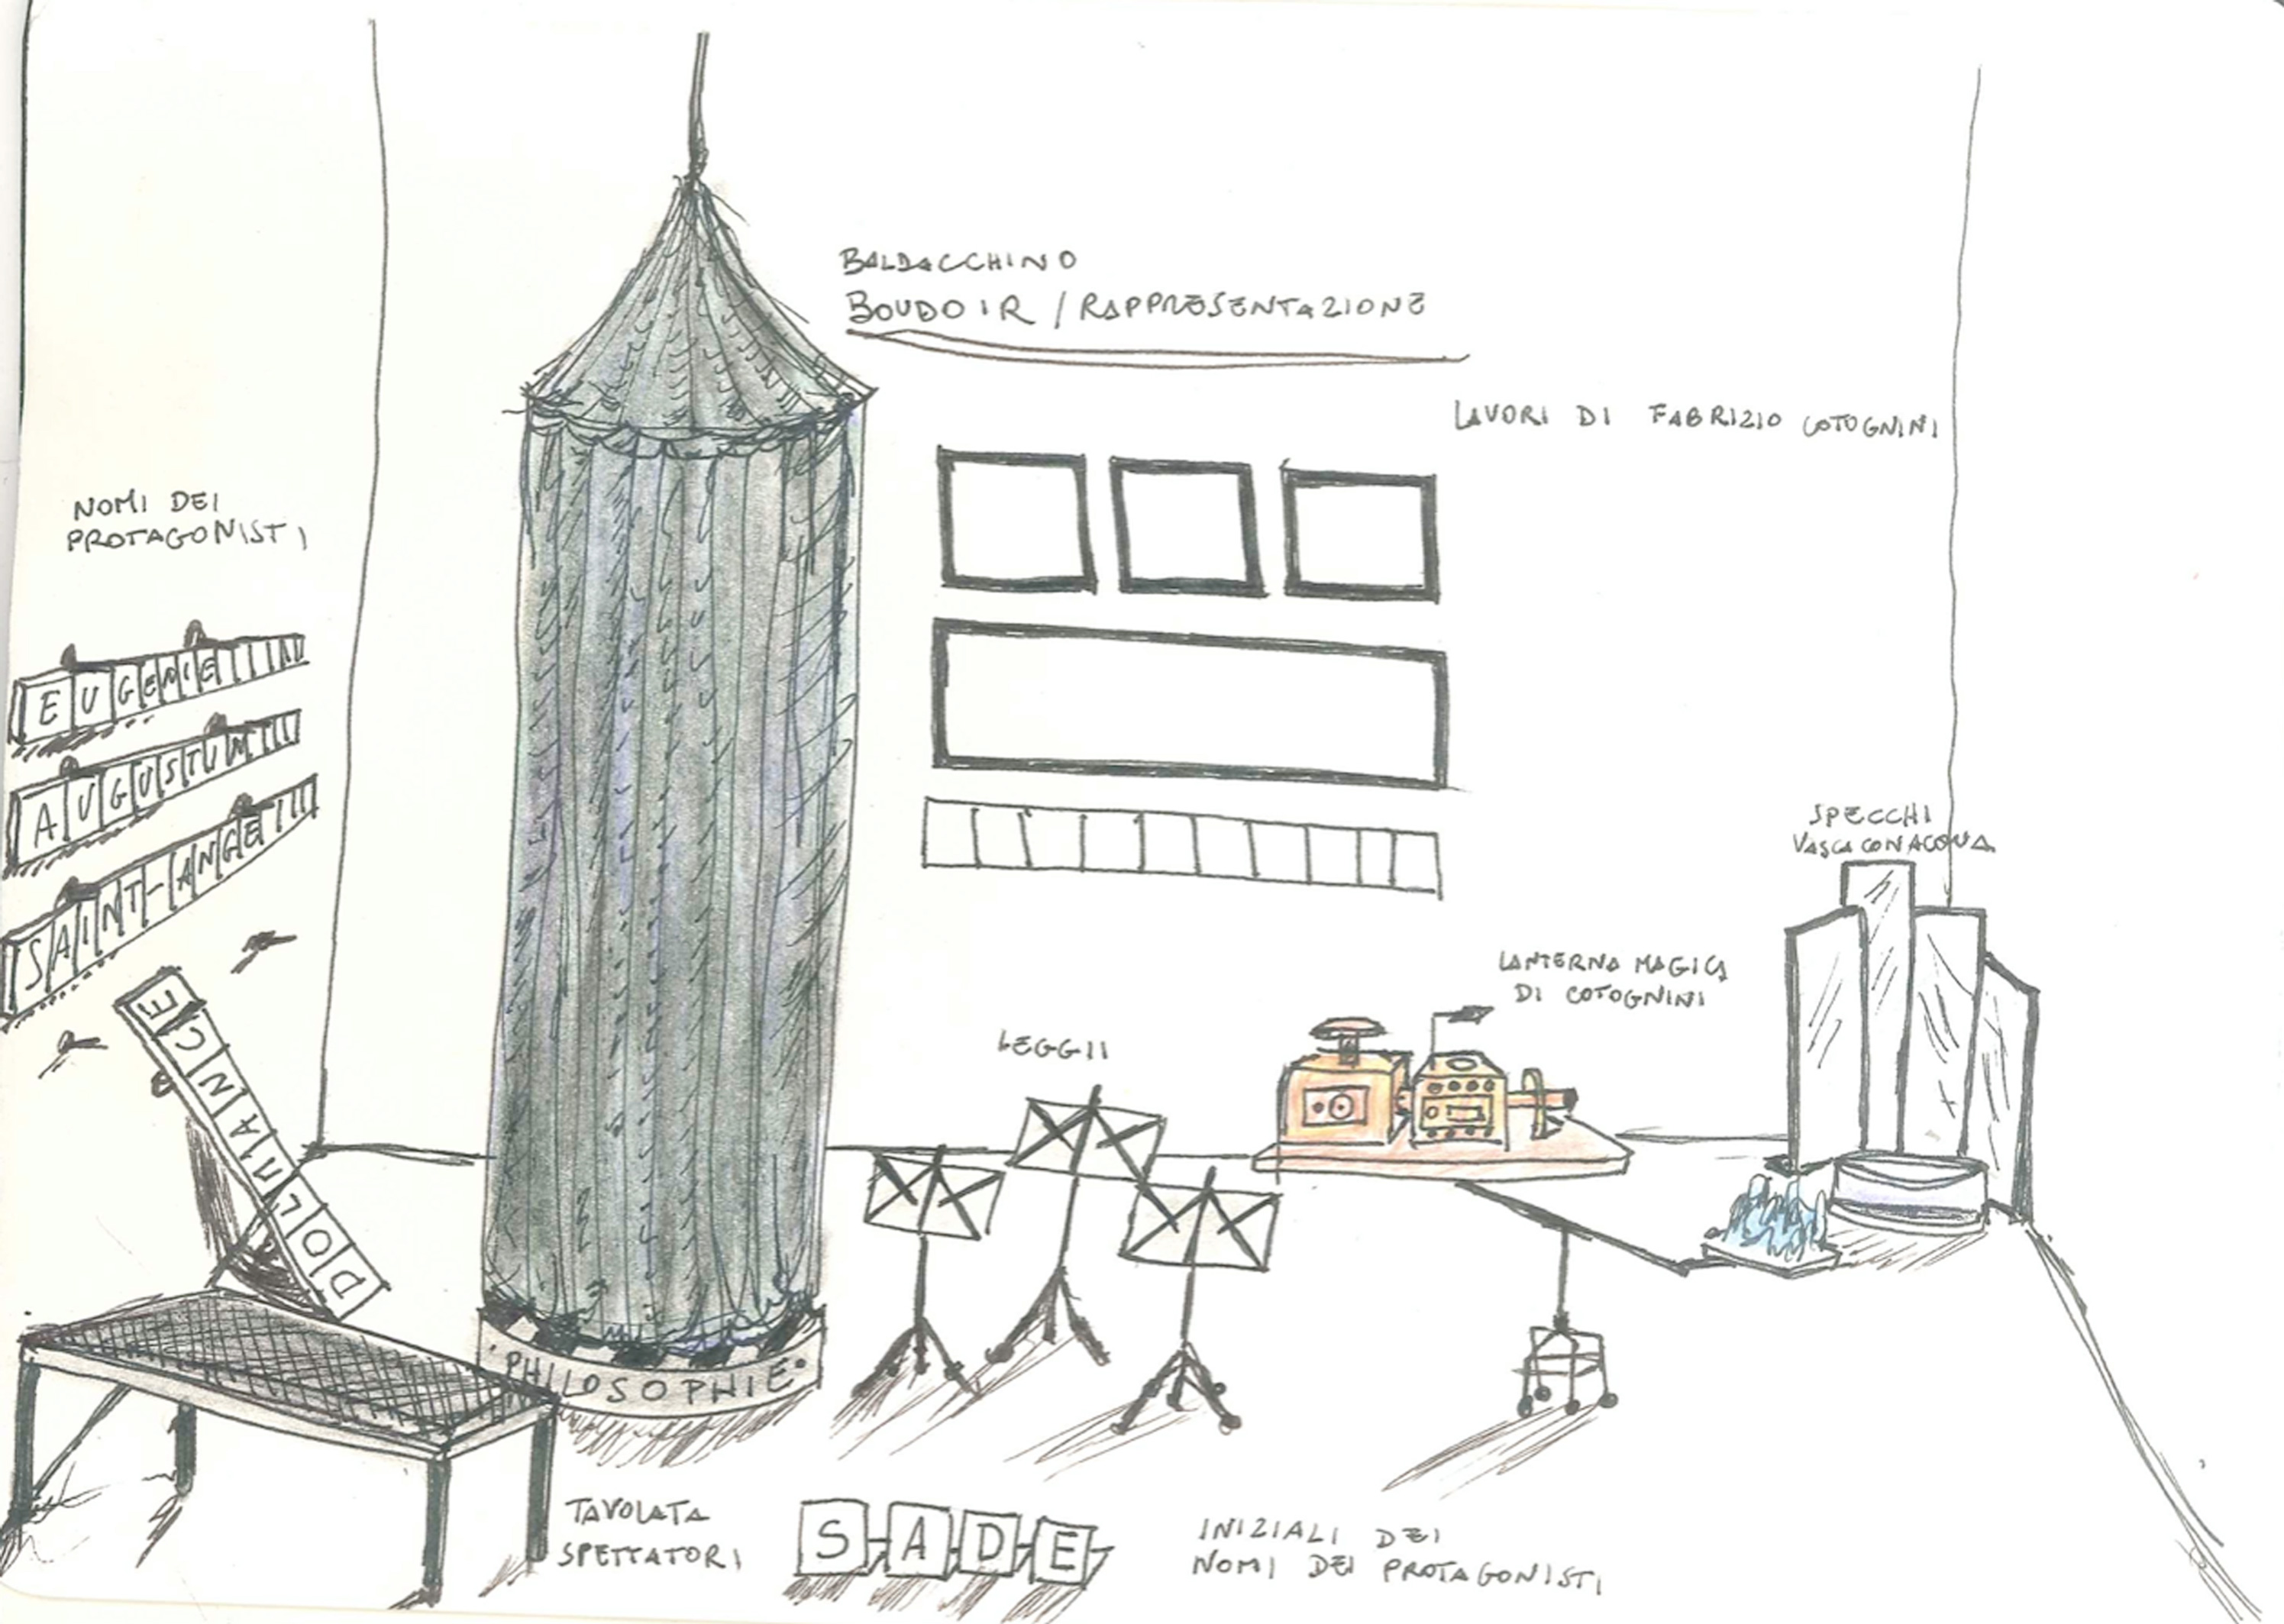 BALDACCHINO
BOUDOIR / RAPPRESENTAZIONE
LAVORI DI FABRIZIO COTOGNINI
NOMI DEI
PROTAGONISTI
EUGENIE
AUGUSTIN
SAINT-ANGE
DOLMANCE
SPECCHI
VASCA CON ACQUA
LANTERNA MAGICA
DI COTOGNINI
LEGGII
·PHILOSOPHIE·
TAVOLATA
SPETTATORI
S-A-D-E
INIZIALI DEI
NOMI DEI PROTAGONISTI